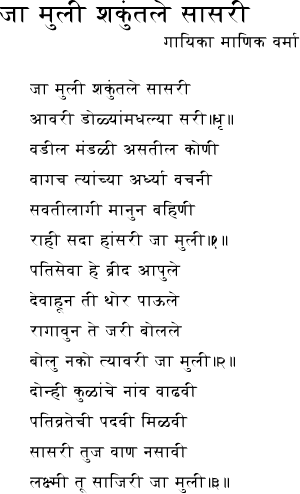 जा मुली शकुंतले सासरी
गायिका माणिक वर्मा
जा मुली शकुंतले सासरी
आवरी डोळ्यांमधल्या सरी॥धृ॥
वडील मंडळी असतील कोणी
वागच त्यांच्या अर्ध्या वचनी
सवतीलागी मानुन वहिणी
राही सदा हांसरी जा मुली॥१॥
पतिसेवा हे ब्रीद आपुले
देवाहून ती थोर पाऊले
रागावुन ते जरी बोलले
बोलु नको त्यावरी जा मुली॥२॥
दोन्ही कुळांचे नांव वाढवी
पतिव्रतेची पदवी मिळवी
सासरी तुज वाण नसावी
लक्ष्मी तू साजिरी जा मुली॥३॥